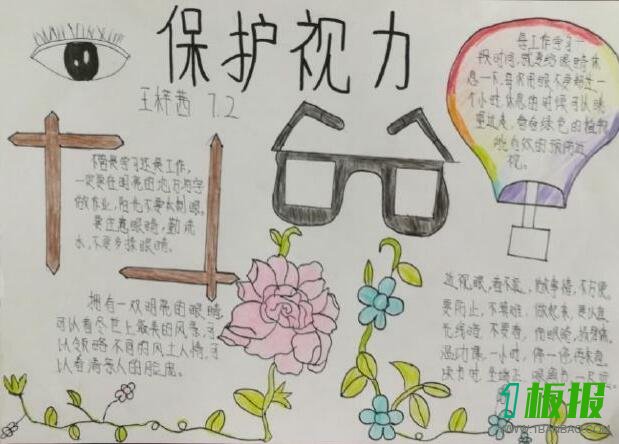 保护视力
王梓茜 7.2
每工作学习一
段时间,就要给眼睛休
息一下,每次用眼不要超过一
个小时休息的时候可以眺
望远处,看看绿色的植物
能有效的预防近
视。
不管是学习还是工作,
一定要在明亮的地方写字
做作业,阳光不要太刺眼。
要注意眼睛,勤洗
水,不要多揉眼睛。
拥有一双明亮的眼睛
可以看尽世上最美的风景,可
以领略不同的风土人情,可
以看清亲人的脸庞。
近视眼,看不远,做事情,不方便
要防止,不算难,做起来,要认真
光线暗,不要看,
温功课,一小时,停一停,再来看
读书时,坐端正,眼离书,一尺远
1板报
WWW.1BANBAO.COM